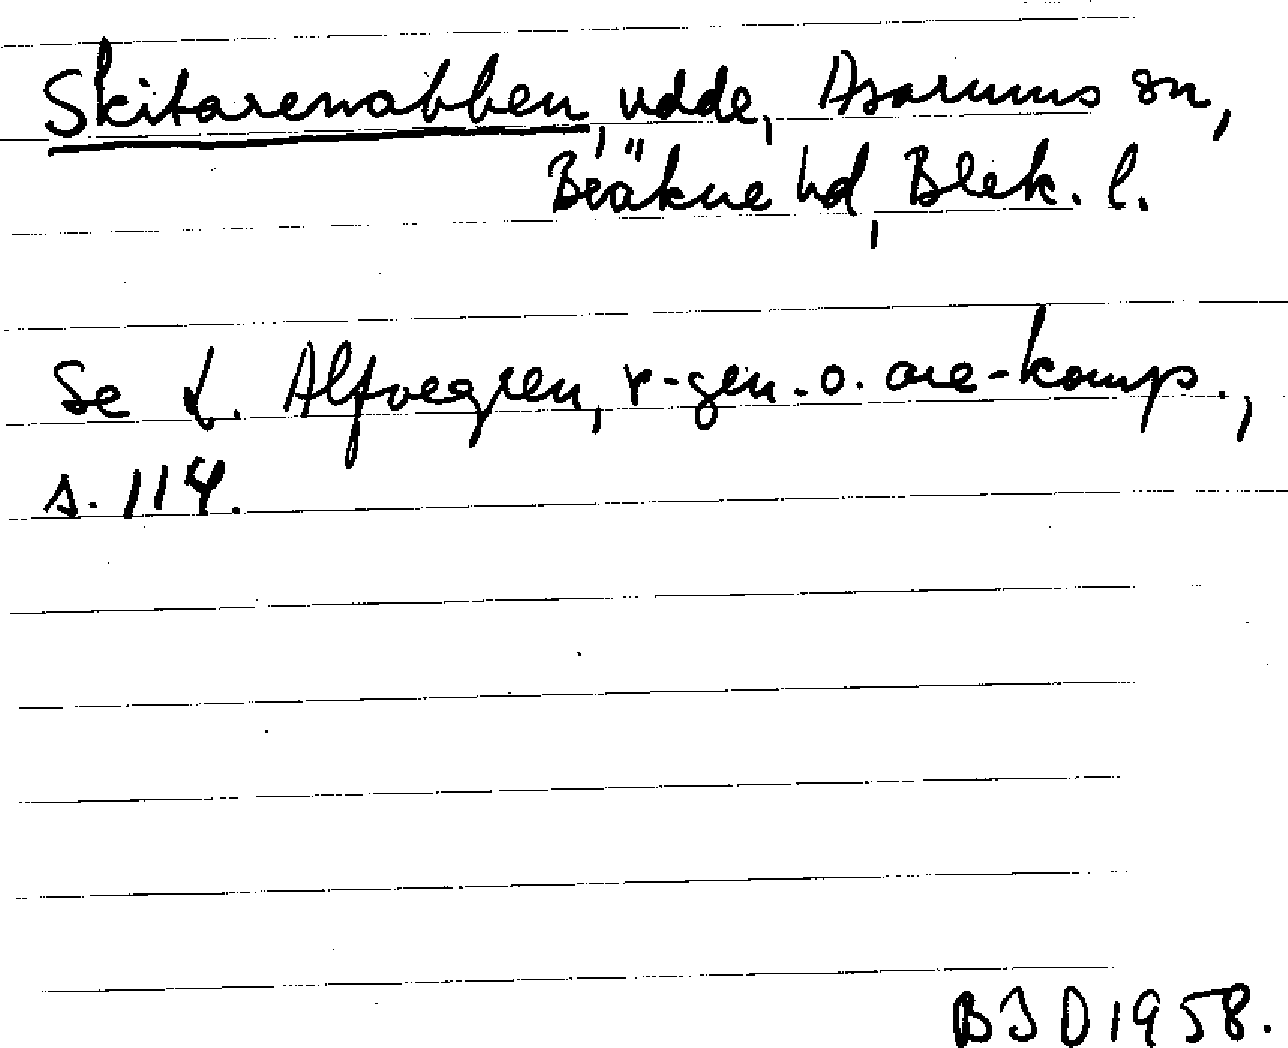 Skitarenabben, udde, Asarums sn,
Bräkne hd, Blek. l.
Se L. Alfvegren, r-gen. o. are-komp.,
s. 114.
BJD 1958.